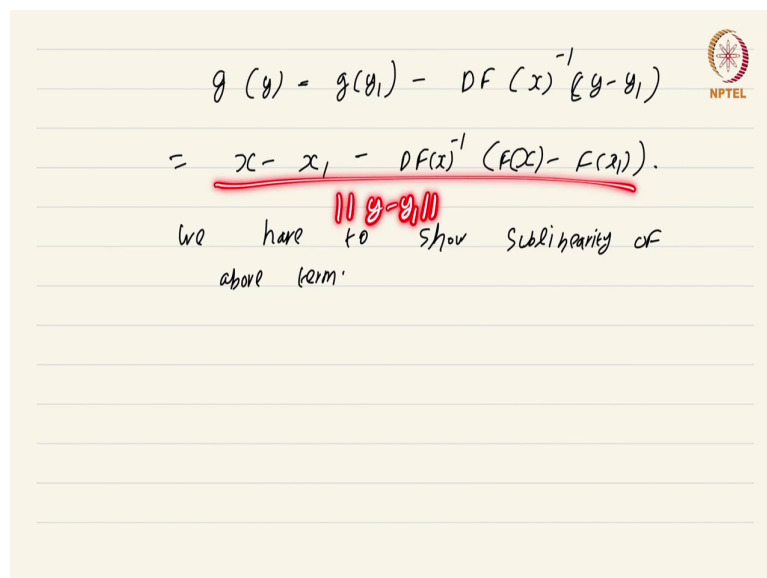 g (y) - g(y₁) - DF (x)⁻¹ (y-y₁)
NPTEL
= x - x₁ - DF(x)⁻¹ (F(x) - F(x₁)).
|| y-y₁ ||
we have to show sublinearity of
above term.